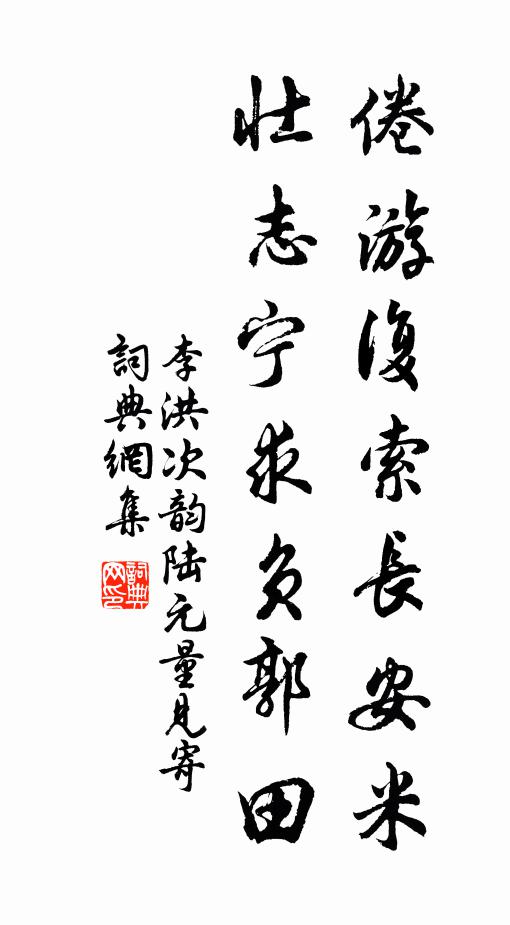 倦游復索長安米
壯志宁求负郭田
李洪次韵陆元量見寄
詞典網集
詞典网印